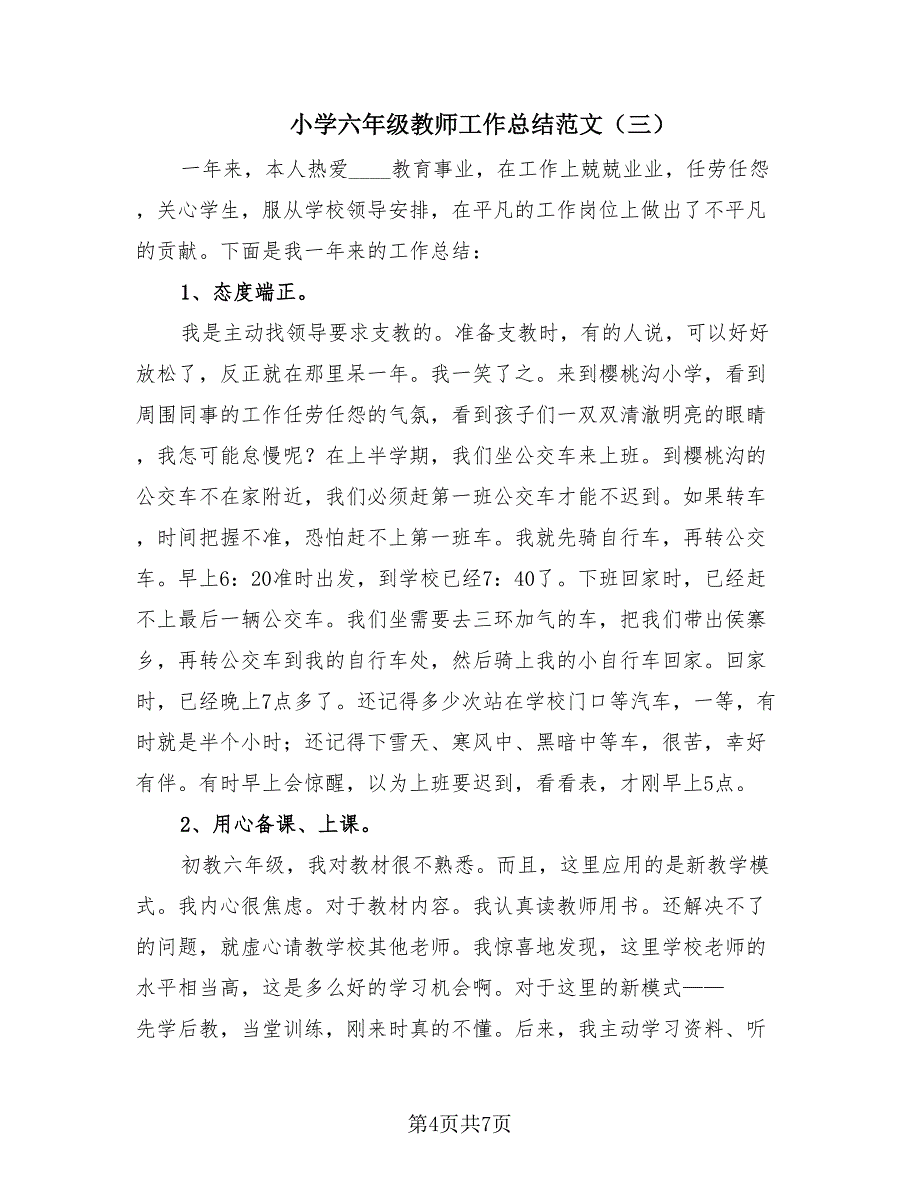 小学六年级教师工作总结范文（三）
一年来，本人热爱____教育事业，在工作上兢兢业业，任劳任怨
，关心学生，服从学校领导安排，在平凡的工作岗位上做出了不平凡
的贡献。下面是我一年来的工作总结：
1、态度端正。
我是主动找领导要求支教的。准备支教时，有的人说，可以好好
放松了，反正就在那里呆一年。我一笑了之。来到樱桃沟小学，看到
周围同事的工作任劳任怨的气氛，看到孩子们一双双清澈明亮的眼睛
，我怎可能怠慢呢？在上半学期，我们坐公交车来上班。到樱桃沟的
公交车不在家附近，我们必须赶第一班公交车才能不迟到。如果转车
，时间把握不准，恐怕赶不上第一班车。我就先骑自行车，再转公交
车。早上6：20准时出发，到学校已经7：40了。下班回家时，已经赶
不上最后一辆公交车。我们坐需要去三环加气的车，把我们带出侯寨
乡，再转公交车到我的自行车处，然后骑上我的小自行车回家。回家
时，已经晚上7点多了。还记得多少次站在学校门口等汽车，一等，有
时就是半个小时；还记得下雪天、寒风中、黑暗中等车，很苦，幸好
有伴。有时早上会惊醒，以为上班要迟到，看看表，才刚早上5点。
2、用心备课、上课。
初教六年级，我对教材很不熟悉。而且，这里应用的是新教学模
式。我内心很焦虑。对于教材内容。我认真读教师用书。还解决不了
的问题，就虚心请教学校其他老师。我惊喜地发现，这里学校老师的
水平相当高，这是多么好的学习机会啊。对于这里的新模式——
先学后教，当堂训练，刚来时真的不懂。后来，我主动学习资料、听
第4页共7页